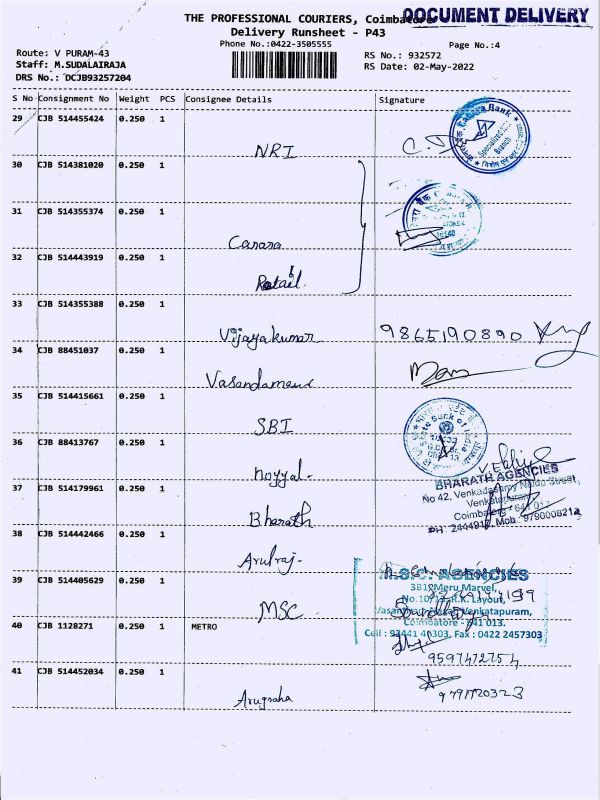 THE PROFESSIONAL COURIERS, Coimbatore
DOCUMENT DELIVERY
Delivery Runsheet - P43
Phone No.:0422-3505555
Page No.:4
Route: V PURAM-43
RS No.: 932572
Staff: M.SUDALAIRAJA
RS Date: 02-May-2022
DRS No.: DCJB93257204
S No Consignment No Weight PCS Consignee Details Signature
29 CJB 514455424 0.250 1
Canara Bank
Specialized
Branch
NRI
30 CJB 514381020 0.250 1
31 CJB 514355374 0.250 1
Canara
32 CJB 514443919 0.250 1
Retail
33 CJB 514355388 0.250 1
Vijayakumar 9865190890
34 CJB 88451037 0.250 1
Vasandamani
35 CJB 514415661 0.250 1
State Bank of India
SBI
36 CJB 88413767 0.250 1
Noyyal
BHARATH AGENCIES
37 CJB 514179961 0.250 1
No 42, Venkatasamy Naidu Street
Venkatapuram
Bharath
Coimbatore - 641 013
38 CJB 514442466 0.250 1
Arulraj
M.S.C. AGENCIES
39 CJB 514405629 0.250 1
3B1, Meru Marvel,
R.K. Layout,
MSC
Venkatapuram,
40 CJB 1128271 0.250 1 METRO
Coimbatore - 641 013.
Cell : 93441 40303, Fax : 0422 2457303
41 CJB 514452034 0.250 1
Arugraha